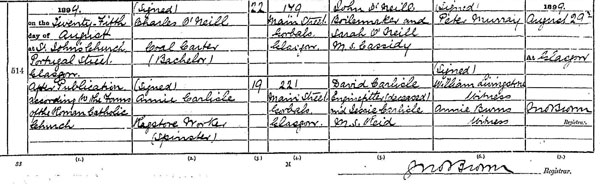 514
1899.
on the Twenty-Fifth
day of August
at St. John's Church
Portugal Street
Glasgow
After Publication
according to the Forms
of the Roman Catholic
Church
(Signed)
Charles O'Neill
Coal Carter
(Bachelor)
(Signed)
Annie Carlisle
Ragstore Worker
(Spinster)
22
19
179
Main Street
Gorbals
Glasgow.
221
Main Street
Gorbals
Glasgow.
John O'Neill
Boilemaker and
Sarah O'Neill
M.S. Cassidy
David Carlisle
Enginefitter (deceased)
and Carlisle
M.S. Reid
(Signed)
Peter Murray
(Signed)
William Livingstone
Witness
Annie Burns
Witness
1899.
August 29th
At Glasgow
Jno Brown
Registrar.
(1.)
(2.)
(3.)
(4.)
(5.)
(6.)
(7.)
Jno Brown
Registrar.